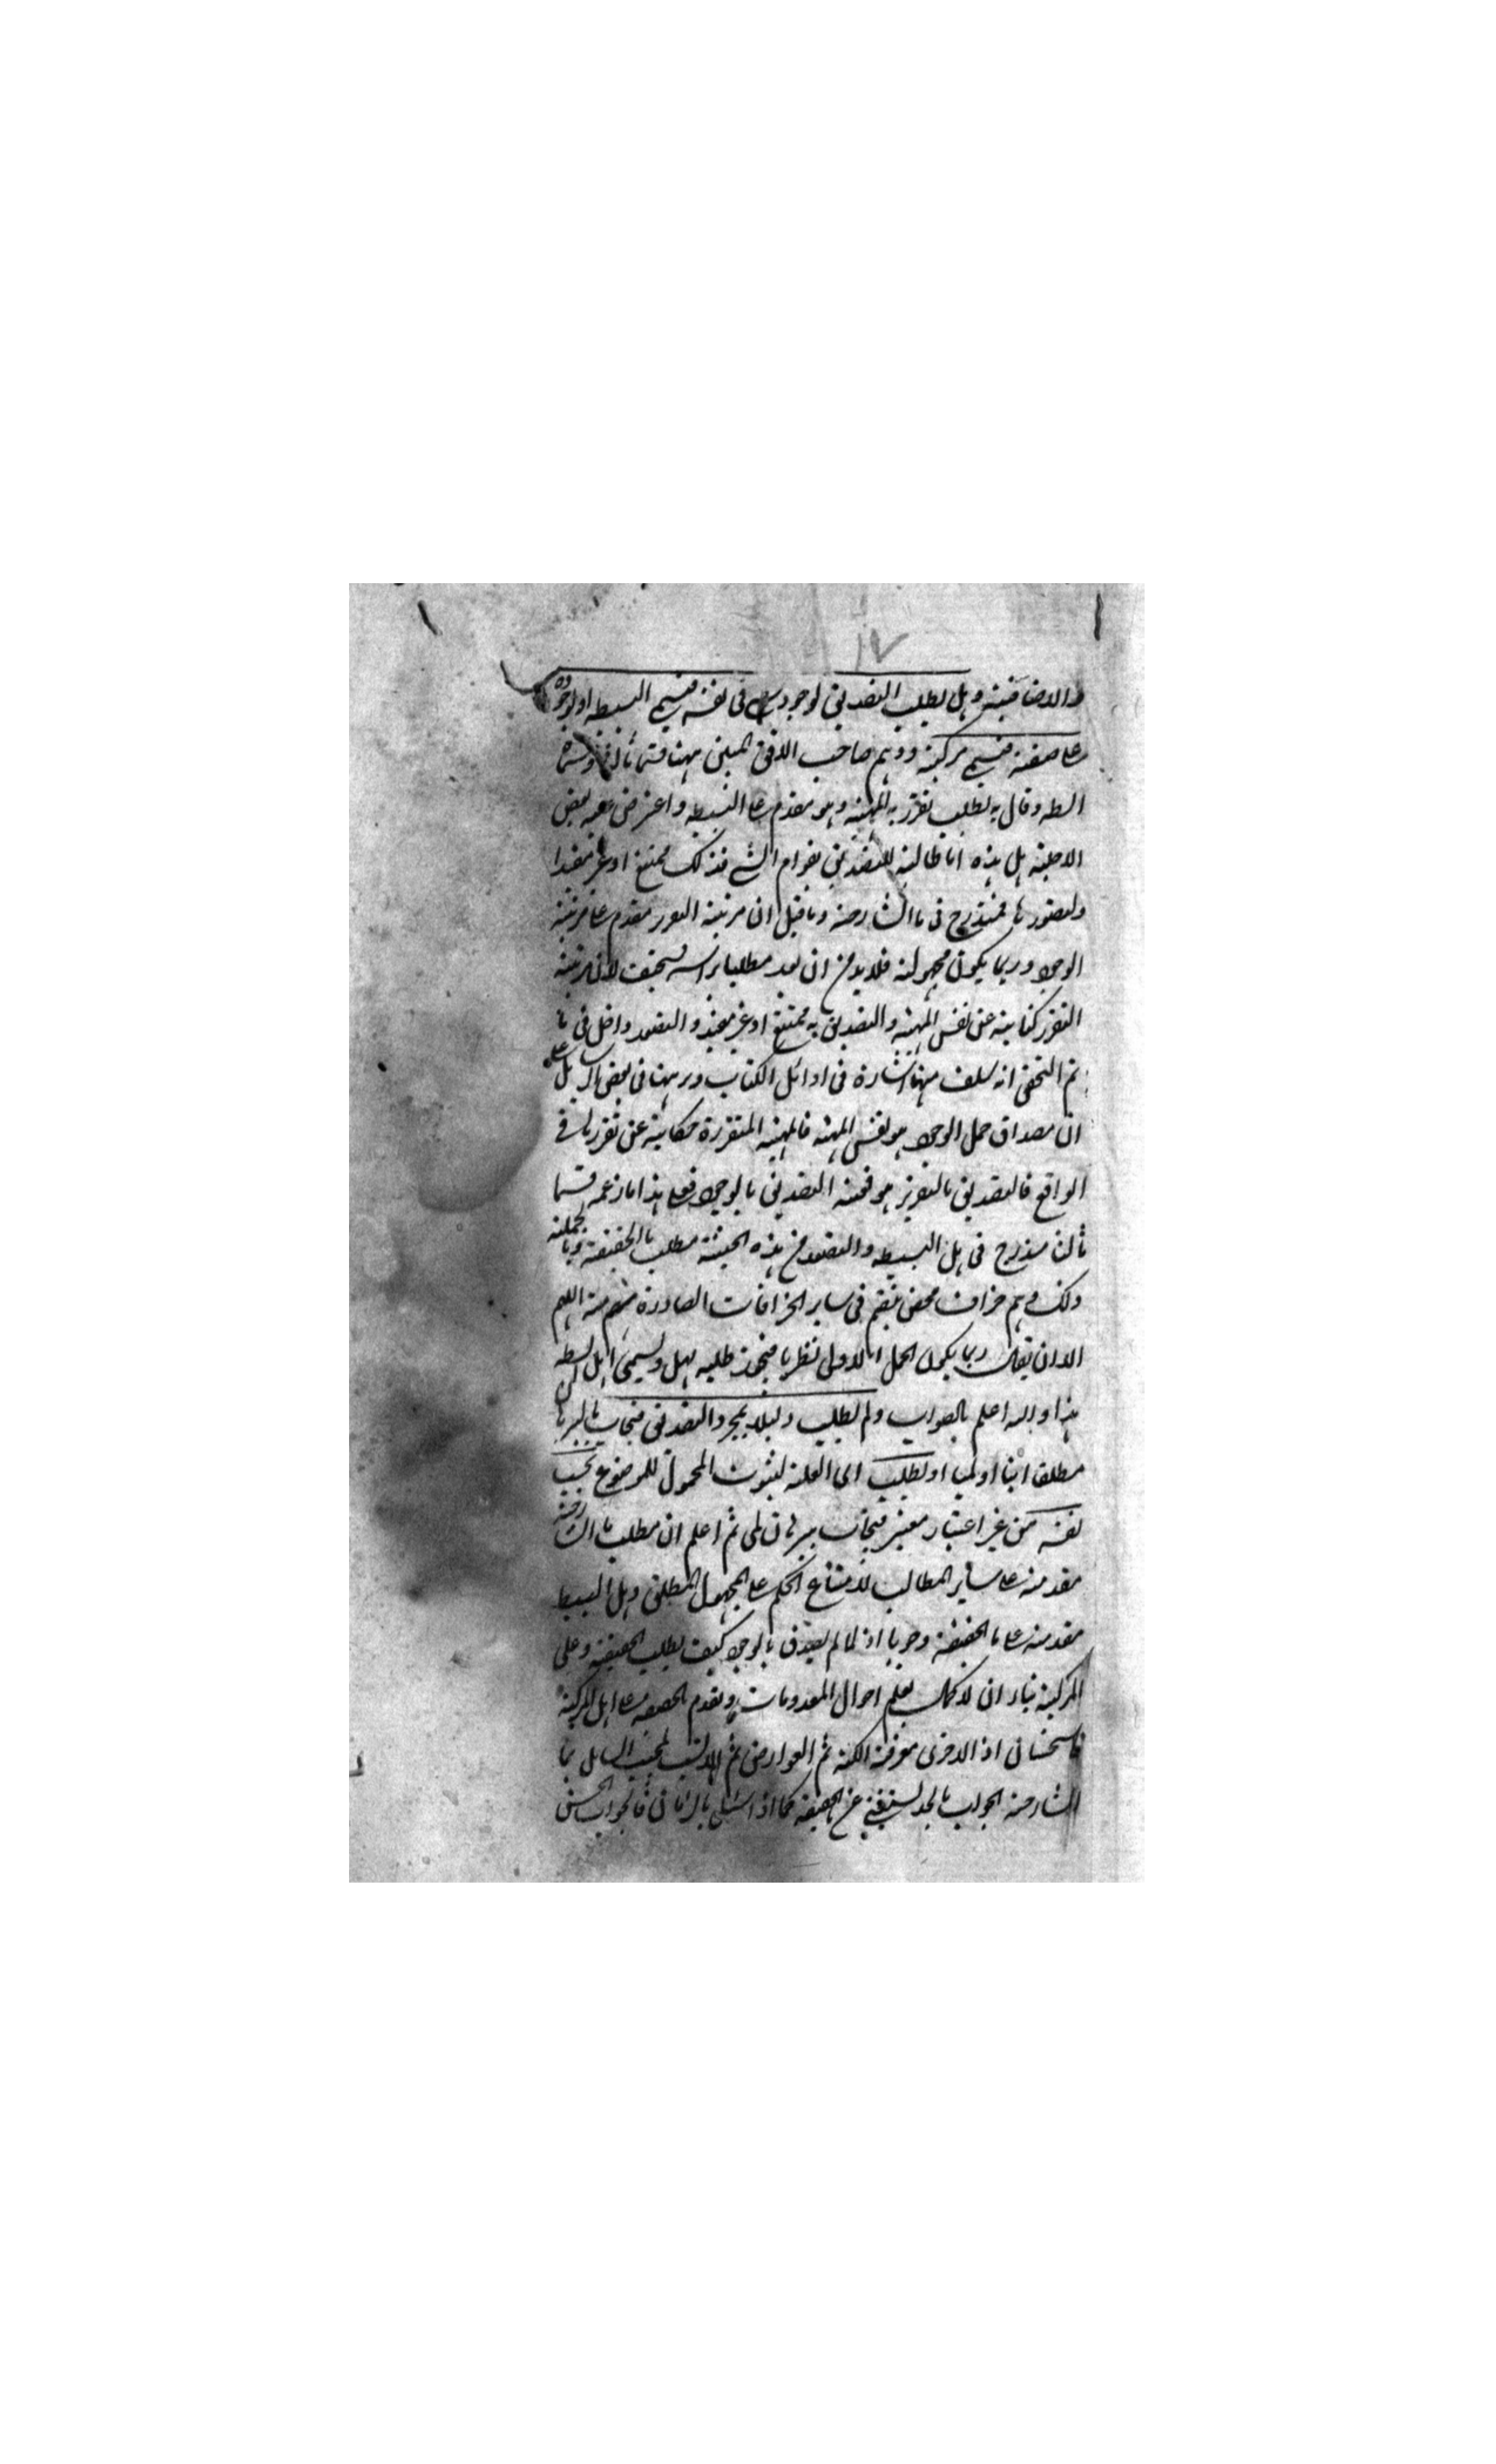 ١٧
والاضافية وهل لطلب التصديق لوجود شئ في نفسه فيسمى البسيطة او لوجوده
على صفة فيسمى مركبة ووهم صاحب الافق المبين ههنا قسما ثالثا وسماه
البسيطة وقال به لطلب تقرر الماهية وهو مقدم على البسيطة واعترض عليه بعض
الاجلة هل هذه اما طالبة للتصديق بقوام الشئ فذلك ممتنع او غير مفيد
ولتصورها فمندرج في ما الشارحة وما قيل ان مرتبة التقرر مقدم على مرتبة
الوجود وربما يكون مجهولة فلا بد من ان يعد مطلبا براسه لسخيف لان مرتبة
التقرر كناية عن نفس الماهية والتصديق به ممتنع او غير مفيد والتصور داخل في ما
ثم التحقيق انه سلف منا اشارة في اوائل الكتاب وبرهنا في بعض الرسائل على
ان مصداق حمل الوجود هو نفس الماهية فالماهية المتقررة حكاية عن تقررها في
الواقع فالتصديق بالتقرر هو قصية التصديق بالوجود فعلى هذا ما زعمه قسما
ثالثا مندرج في هل البسيطة والتصور من هذه الحيثية مطلب ما الحقيقة وبالجملة
ذلك وهم خراف محض ينضم في ساير الخرافات الصادرة منه اللهم
الا ان يقال ربما يكون الحمل الاولى نظريا فيجوز طلبه بهل ويسمى هل البسيطة
هذا والله اعلم بالصواب ولم لطلب دليلا لمجرد التصديق فيجاب بالبرهان
مطلقا انيا او لميا او لطلب اى العلة لثبوت المحمول للموضوع بحسب
نفسه من غير اعتبار معتبر فيجاب ببرهان لمى ثم اعلم ان مطلب ما الشارحة
مقدمة على ساير المطالب لامتناع الحكم على المجهول المطلق وهل البسيطة
مقدمة على ما الحقيقة وجوبا اذ ما لم يصدق بالوجود كيف يطلب الحقيقة وعلى
المركبة بناء ان لا كمال بعلم احوال المعدومات وتقدم الحقيقة على هل المركبة
استحسانى اذ الاحرى معرفة الكنه ثم العوارض ثم ان لم يجب السائل بما
الشارحة الجواب بالحد ليستغنى عن الحقيقة كما اذا سئل بالثانى فالجواب الحسن